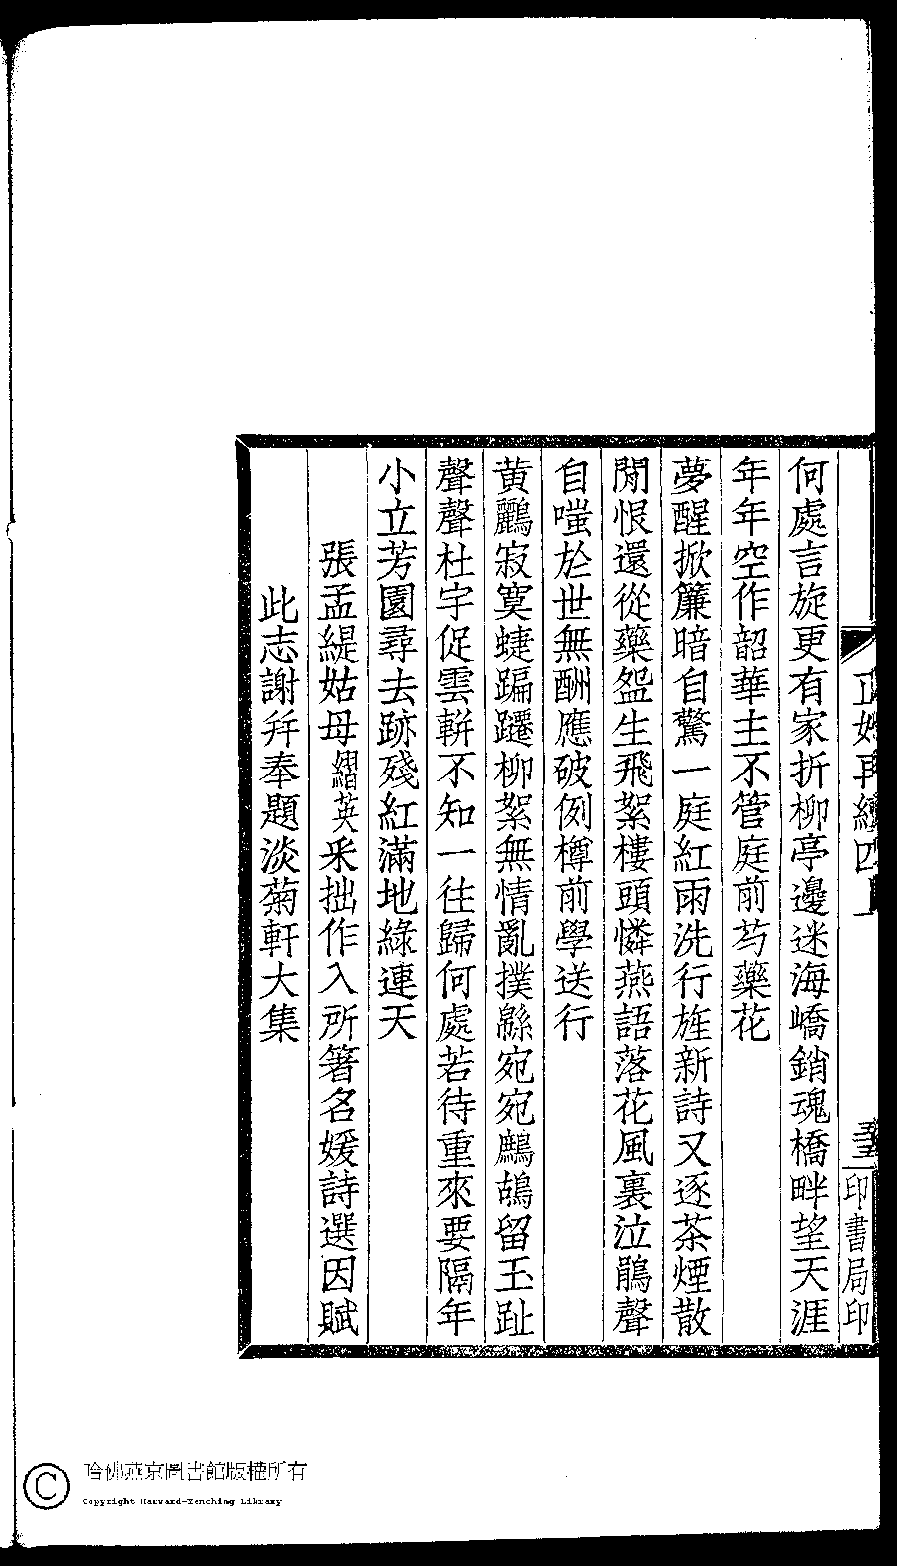 何處言旋更有家折柳亭邊迷海嶠銷魂橋畔望天涯
年年空作韶華主不管庭前芍藥花
夢醒掀簾暗自驚一庭紅雨洗行旌新詩又逐茶煙散
閒恨還從藥盌生飛絮樓頭憐燕語落花風裏泣鵑聲
自嗤於世無酬應破例樽前學送行
黄鸝寂寞蜨蹁躚柳絮無情亂撲緜宛宛鷓鴣留玉趾
聲聲杜宇促雲軿不知一往歸何處若待重來要隔年
小立芳園尋去跡殘紅滿地綠連天
張孟緹姑母繝英采拙作入所箸名媛詩選因賦
此志謝幷奉題淡菊軒大集
再續四
印書局印
哈佛燕京圖書館版權所有
Copyright Harvard-Yenching Library